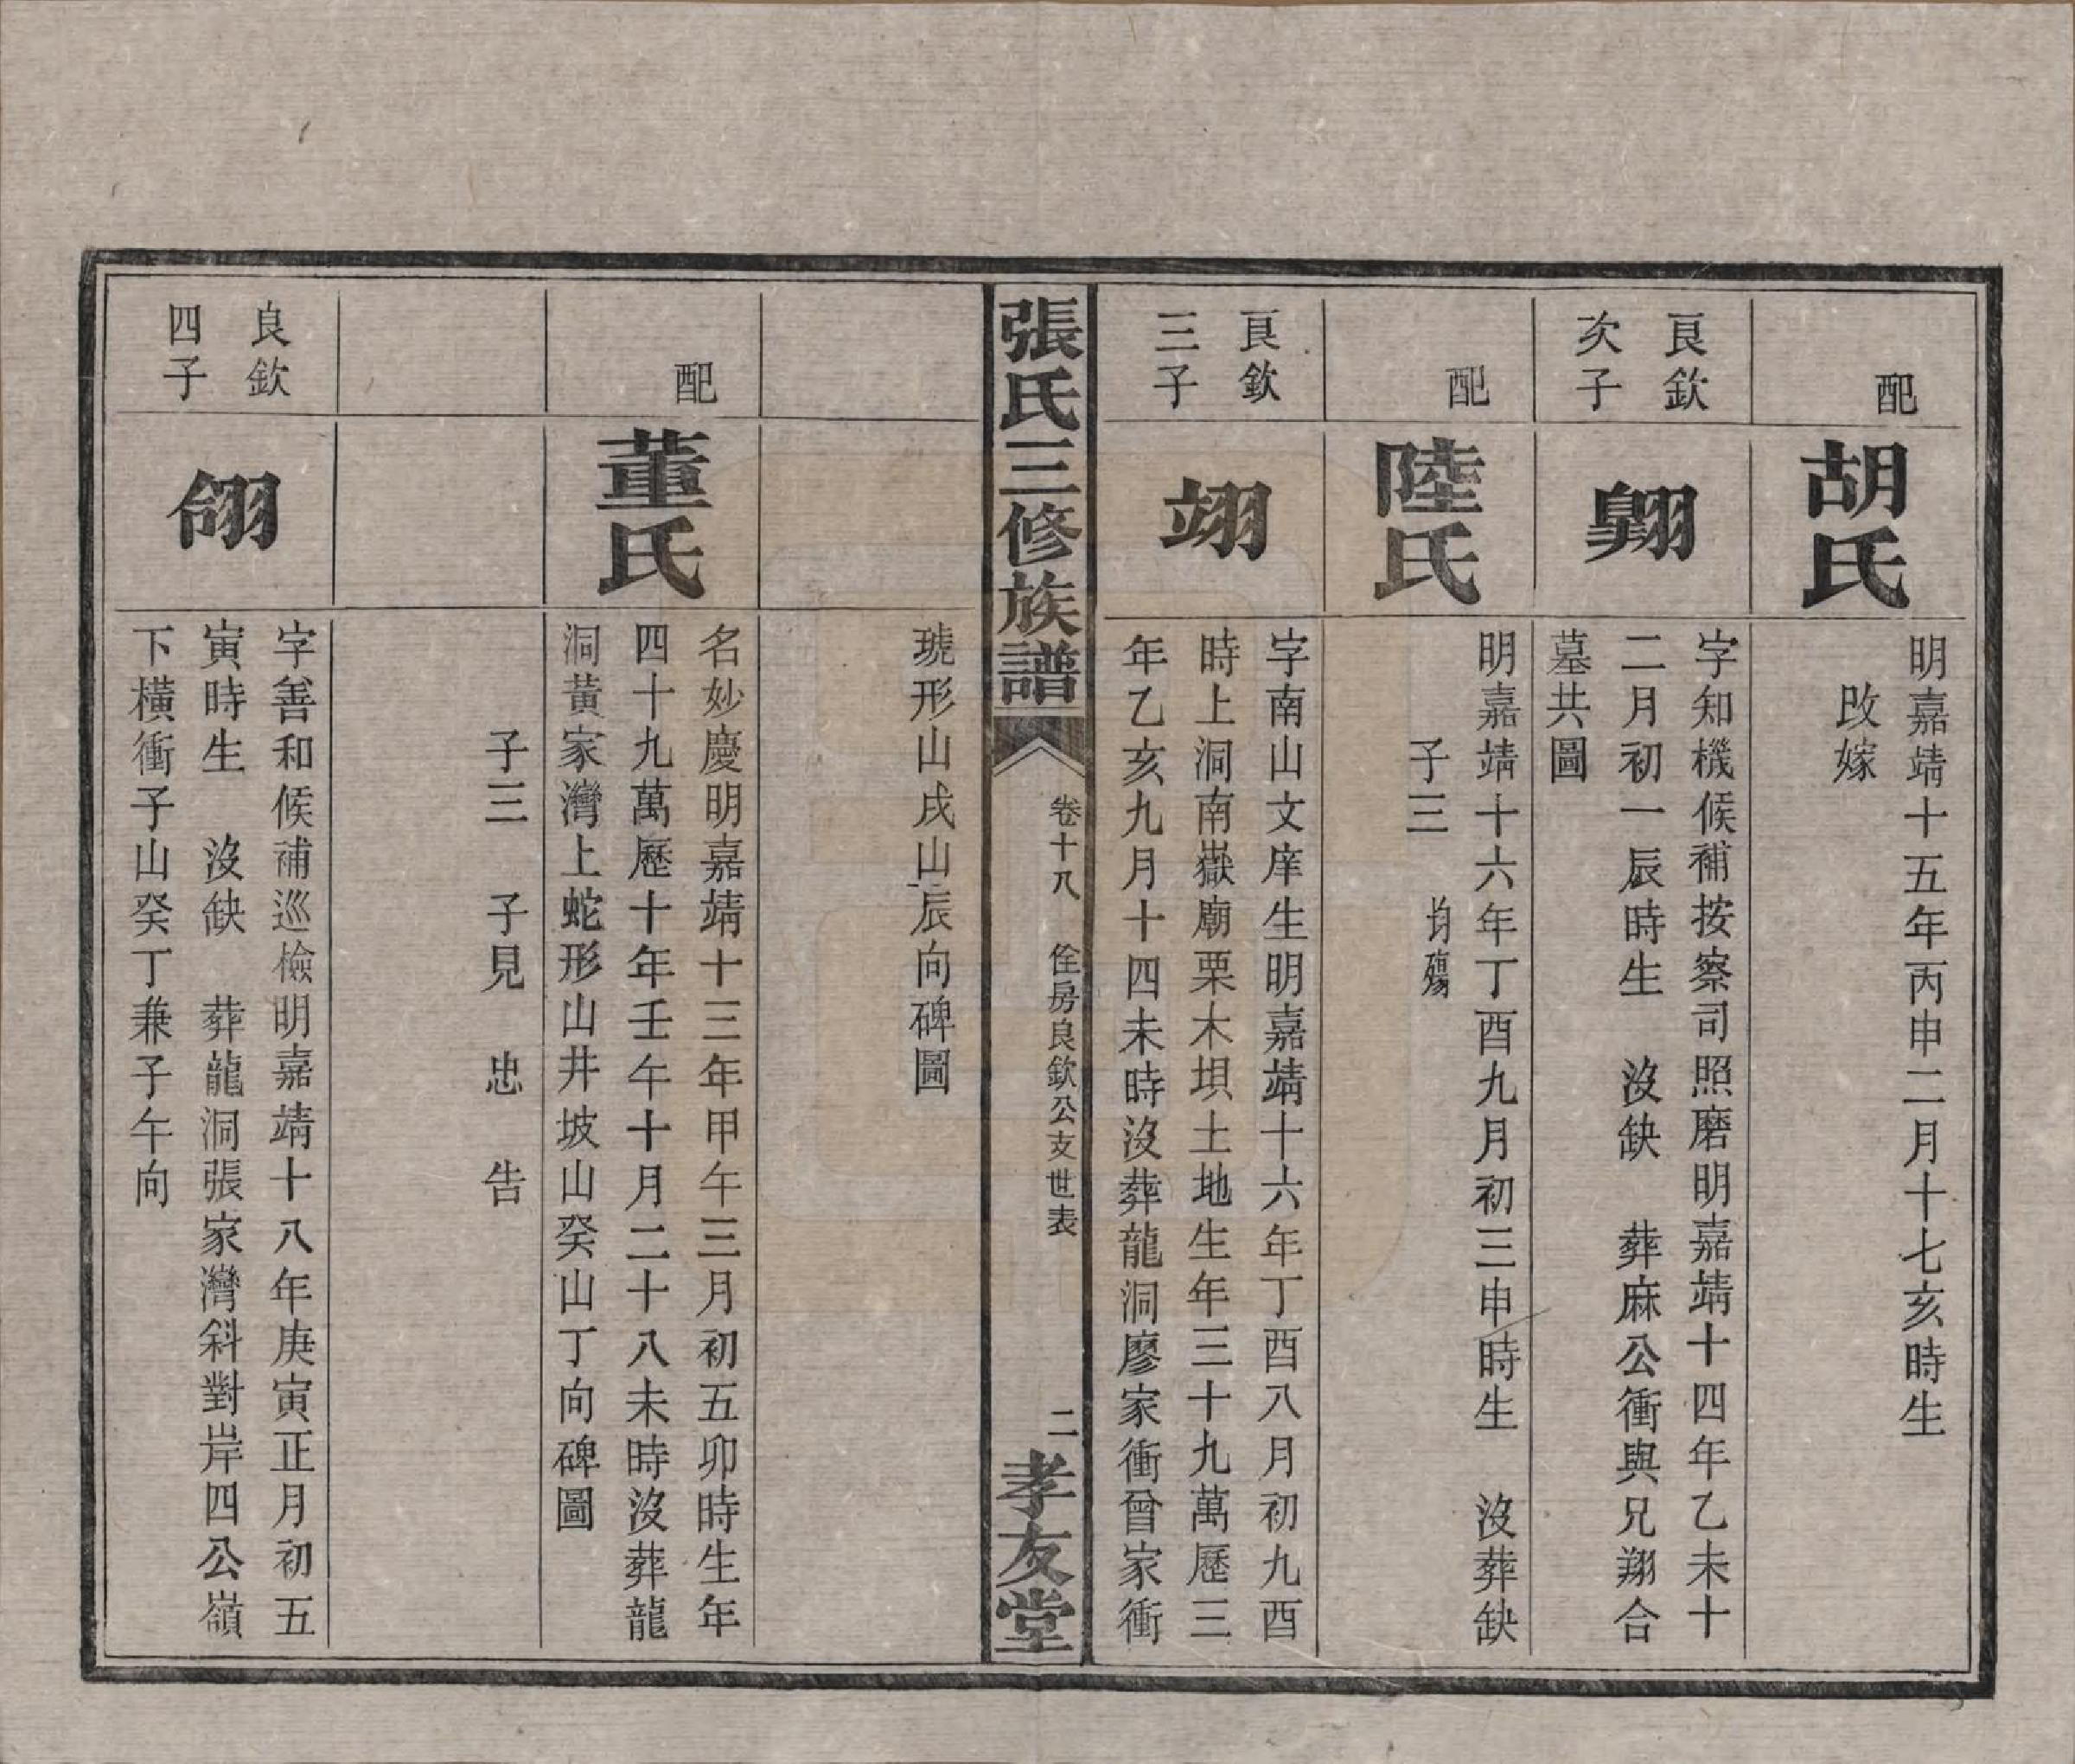 配
胡氏
明嘉靖十五年丙申二月十七亥時生
改嫁
良欽
次子
翺
字知機候補按察司照磨明嘉靖十四年乙未十
二月初一辰時生　沒缺　葬麻公衝與兄翔合
墓共圖
配
陸氏
明嘉靖十六年丁酉九月初三申時生　沒葬缺
子三　均殤
良欽
三子
翊
字南山文庠生明嘉靖十六年丁酉八月初九酉
時上洞南嶽廟栗木垻土地生年三十九萬歷三
年乙亥九月十四未時沒葬龍洞廖家衝曾家衝
張氏三修族譜
卷十八　佺房良欽公支世表
二
孝友堂
琥形山戌山辰向碑圖
配
董氏
名妙慶明嘉靖十三年甲午三月初五卯時生年
四十九萬歷十年壬午十月二十八未時沒葬龍
洞黃家灣上蛇形山井坡山癸山丁向碑圖
子三　子見　忠　告
良欽
四子
翎
字善和候補巡檢明嘉靖十八年庚寅正月初五
寅時生　沒缺　葬龍洞張家灣斜對岸四公嶺
下橫衝子山癸丁兼子午向